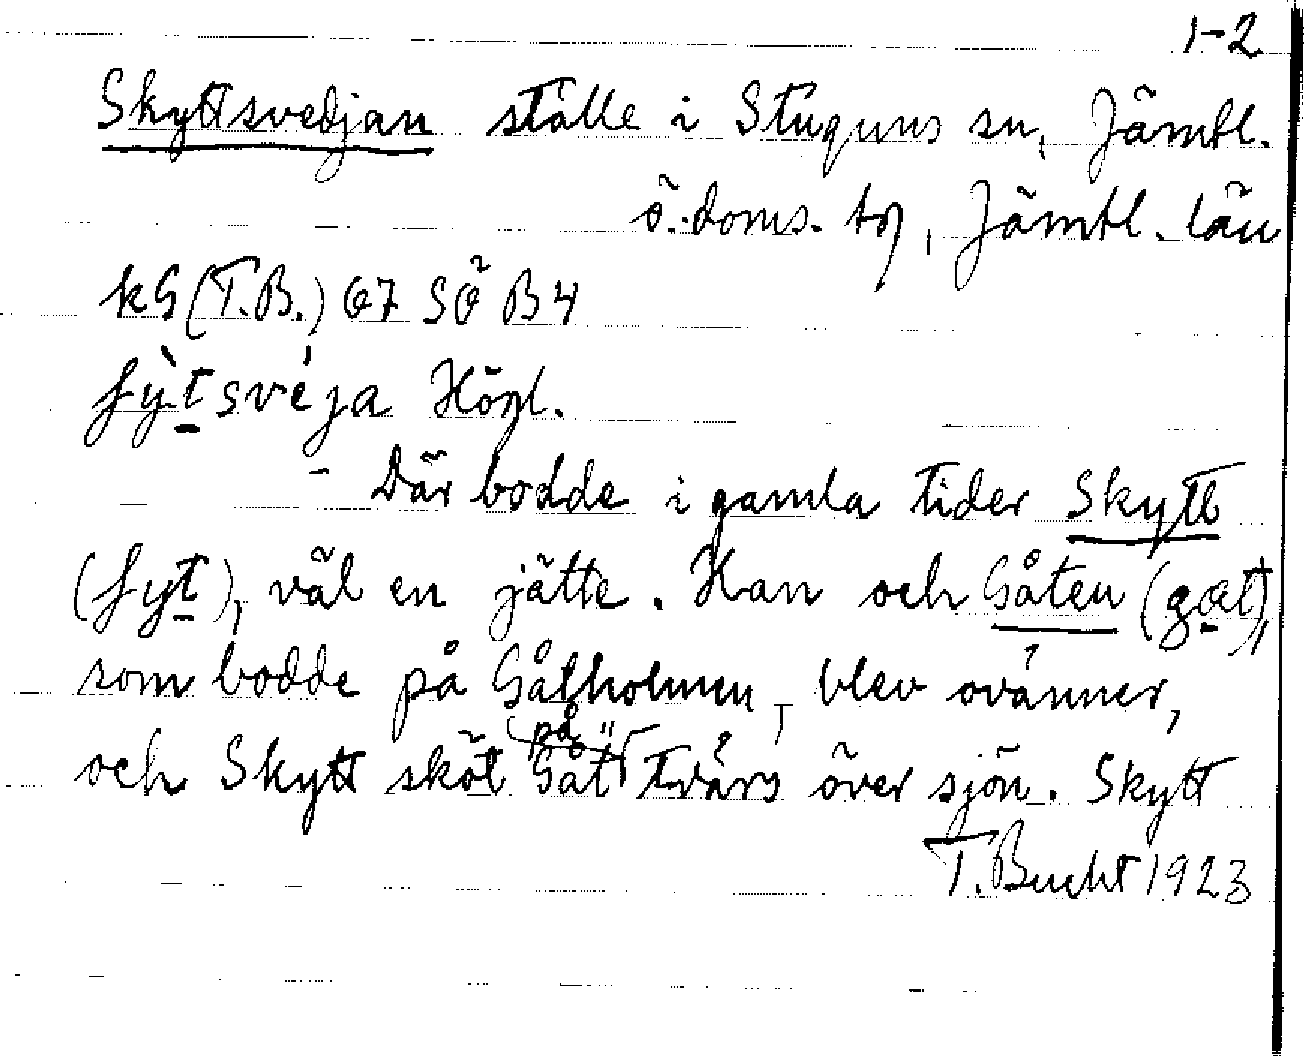 1-2
Skyttsvedjan ställe i Stuguns sn, Jämtl.
ö. doms. tg, Jämtl. län
kG (T.B.) 67 SÖ B4
ʃỳtsvéja Högl.
- Där bodde i gamla tider Skytt
(ʃyt), väl en jätte. Han och Gåten (gɑt),
som bodde på Gåtholmen, blev ovänner,
och Skytt sköt på Gåt tvärs över sjön. Skytt
T. Bucht 1923